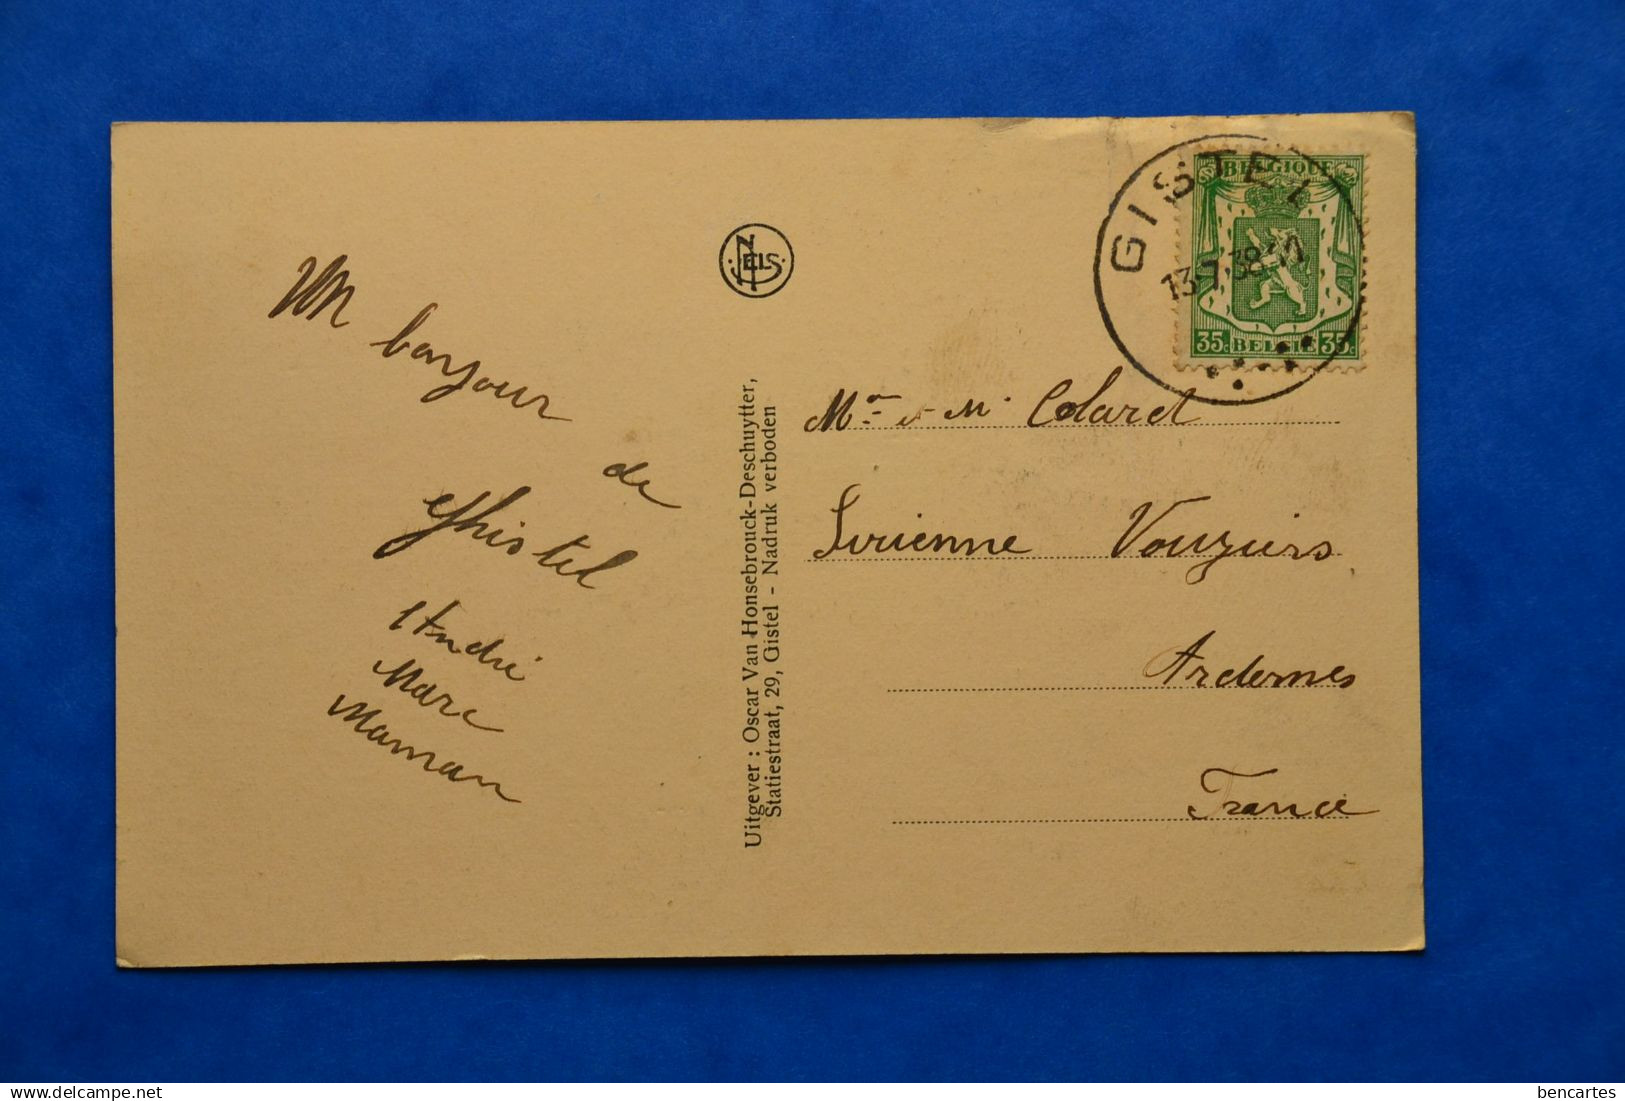 Un bonjour
de
Ghistel
André
Marc
Maman
NELS
Uitgever : Oscar Van Honsebrouck-Deschuytter,
Statiestraat, 29, Gistel - Nadruk verboden
GISTEL
13.7.38
BELGIQUE
35c BELGIE 35c
Mr et M. Colaret
Vouziers
Ardennes
France
bencartes